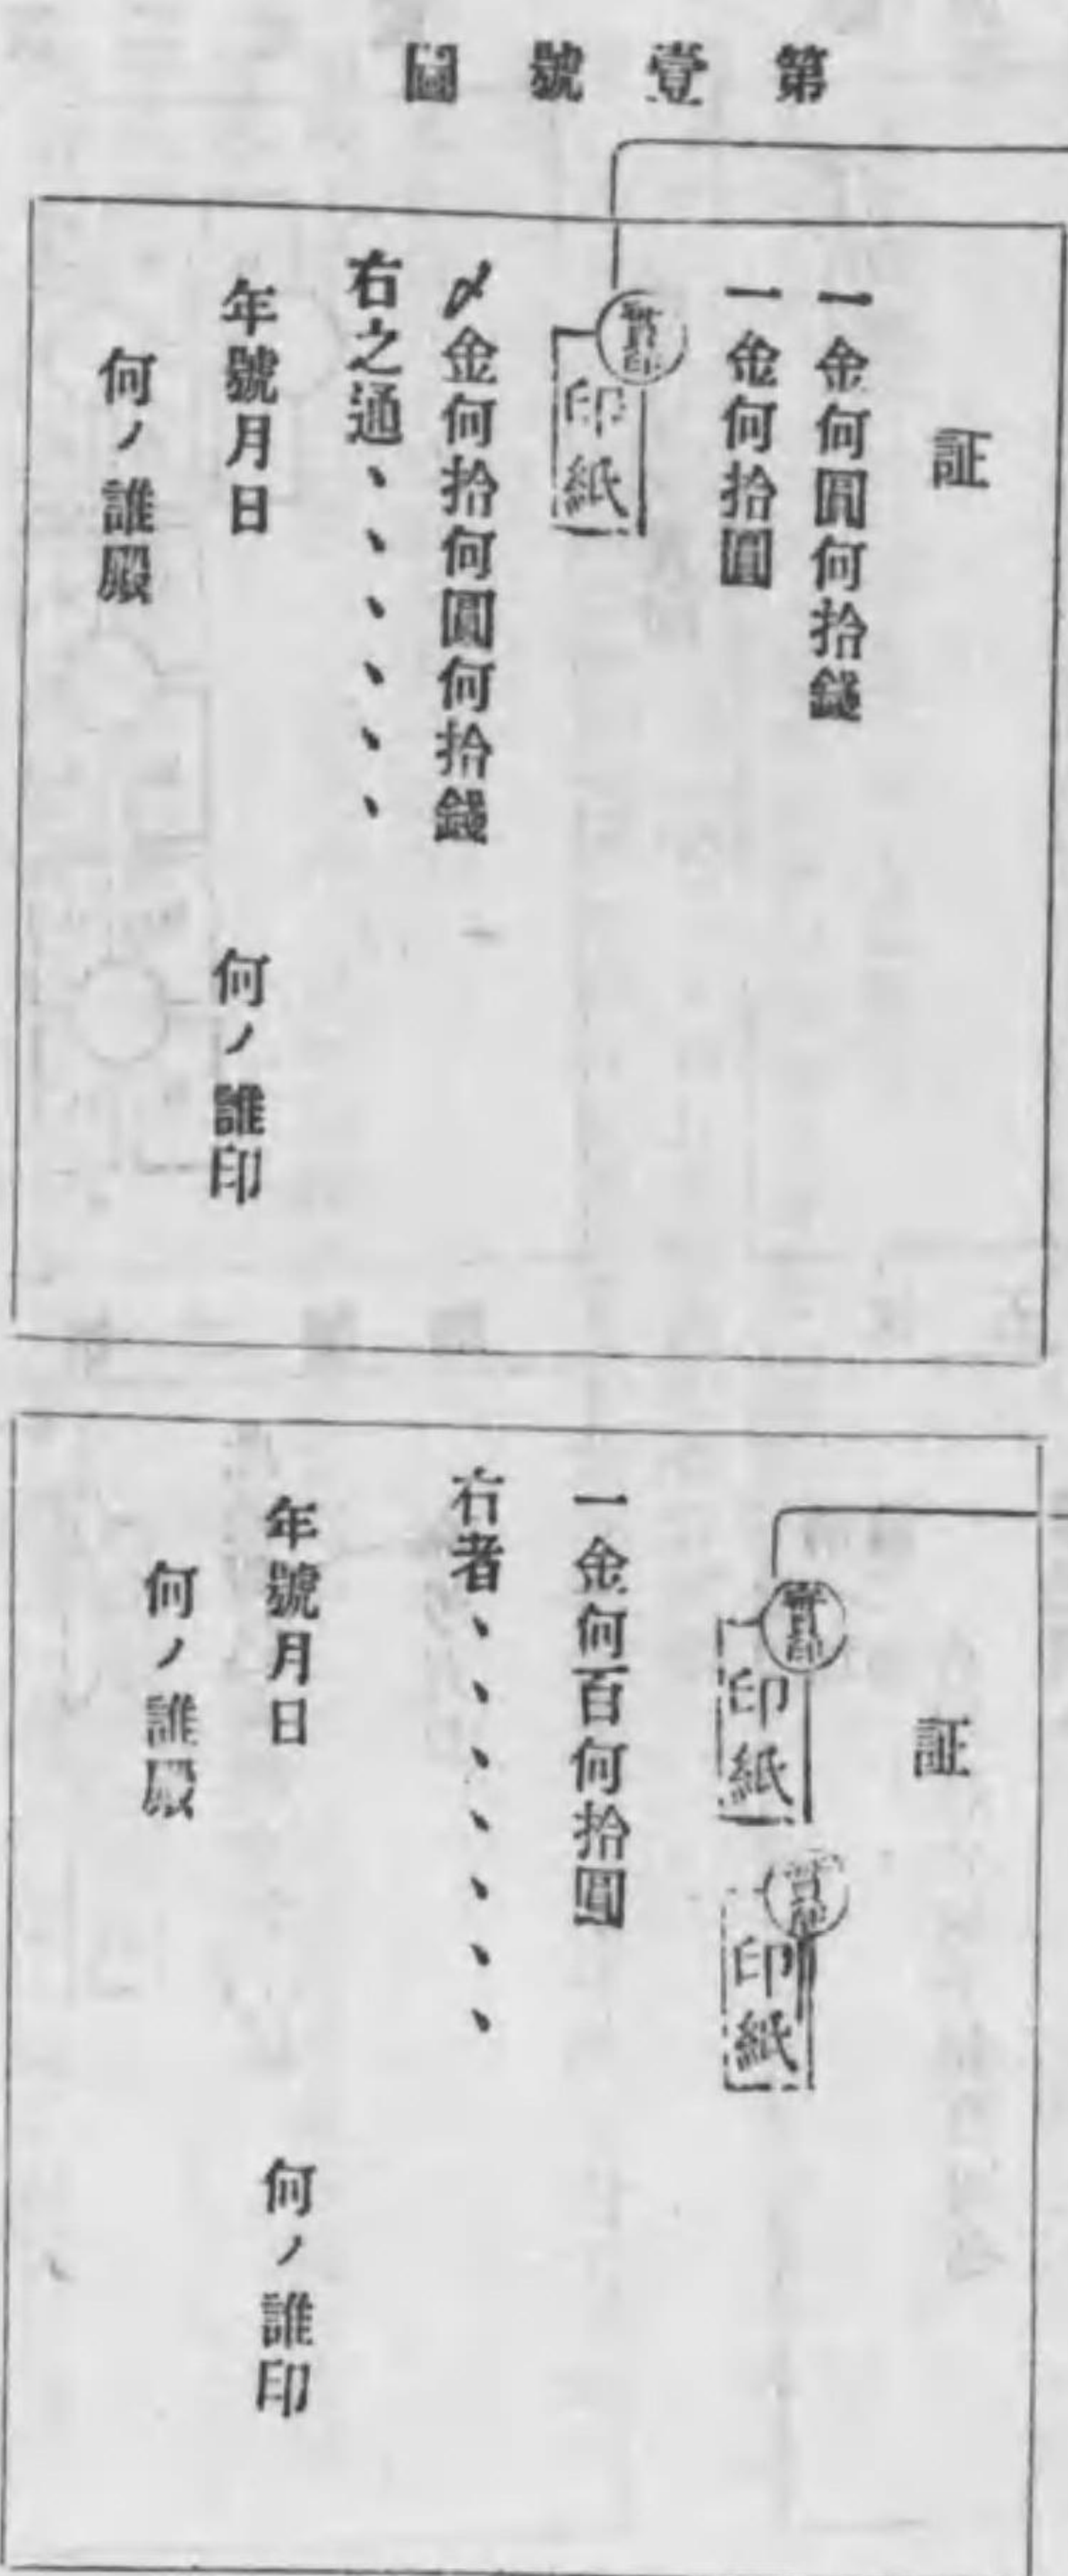 第壹號圖
証
一金何圓何拾錢
一金何拾圓
實印
印紙
〆金何拾何圓何拾錢
右之通、、、、、、
年號月日　何ノ誰印
何ノ誰殿
証
實印
印紙
實印
印紙
一金何百何拾圓
右者、、、、、、、
年號月日　何ノ誰印
何ノ誰殿